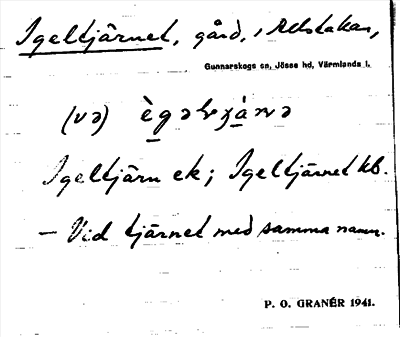 Igeltjärnet, gård, i Älstakan,
Gunnarskogs sn, Jösse hd, Värmlands l.
(və)
Igeltjärn ek; Igeltjärnet kb.
— Vid tjärnet med samma namn.
P. O. GRANÉR 1941.